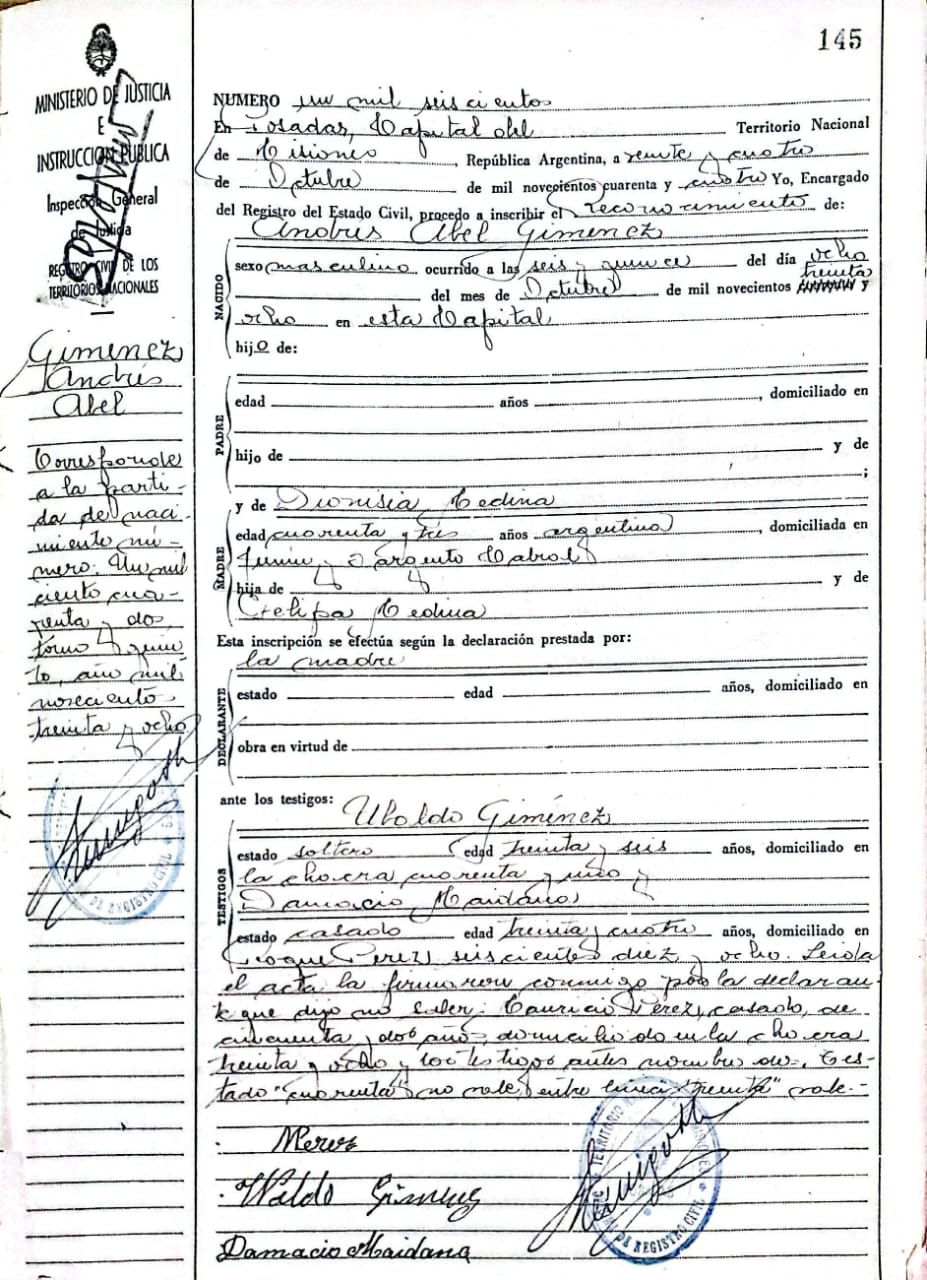 145
MINISTERIO DE JUSTICIA
E
INSTRUCCION PUBLICA
Inspección General
de Justicia
REGISTRO CIVIL DE LOS
TERRITORIOS NACIONALES
Gimenez
Andrés
Abel
Corresponde
a la parti-
da de naci-
miento nú-
mero: Un mil
ciento cua-
renta y dos,
tomo quin
to, año mil
novecientos
treinta y ocho
NUMERO un mil seiscientos
En Posadas, Capital del Territorio Nacional
de Misiones, República Argentina, a veinte y cuatro
de Octubre de mil novecientos cuarenta y cuatro Yo, Encargado
del Registro del Estado Civil, procedo a inscribir el reconocimiento de:
Andrés Abel Gimenez
NACIDO
sexo masculino ocurrido a las seis y quince del día ocho
treinta
del mes de Octubre de mil novecientos y
ocho en esta Capital
hijo de:
PADRE
edad años , domiciliado en
hijo de y de
;
MADRE
y de Dionisia Medina
edad cuarenta y tres años argentina, domiciliada en
Junin y Sargento Cabral
hija de y de
Felipa Medina
Esta inscripción se efectúa según la declaración prestada por:
la madre
DECLARANTE
estado edad años, domiciliado en
obra en virtud de
ante los testigos:
Ubaldo Giménez
TESTIGOS
estado soltero edad treinta y seis años, domiciliado en
la chacra cuarenta y uno y
Damacio Maidana
estado casado edad treinta y cuatro años, domiciliado en
Roque Perez seiscientos diez y ocho. Leida
el acta la firmaron conmigo por la declaran-
te que dijo no saber, Mauricio Perez, casado, de
cincuenta y dos años, domiciliado en la chacra
treinta y ocho y los testigos antes nombrados. Tes-
tado "cuarenta" no vale, entre linea "treinta" vale.-
Waldo Gimenez
Damacio Maidana
DE REGISTRO CIVIL